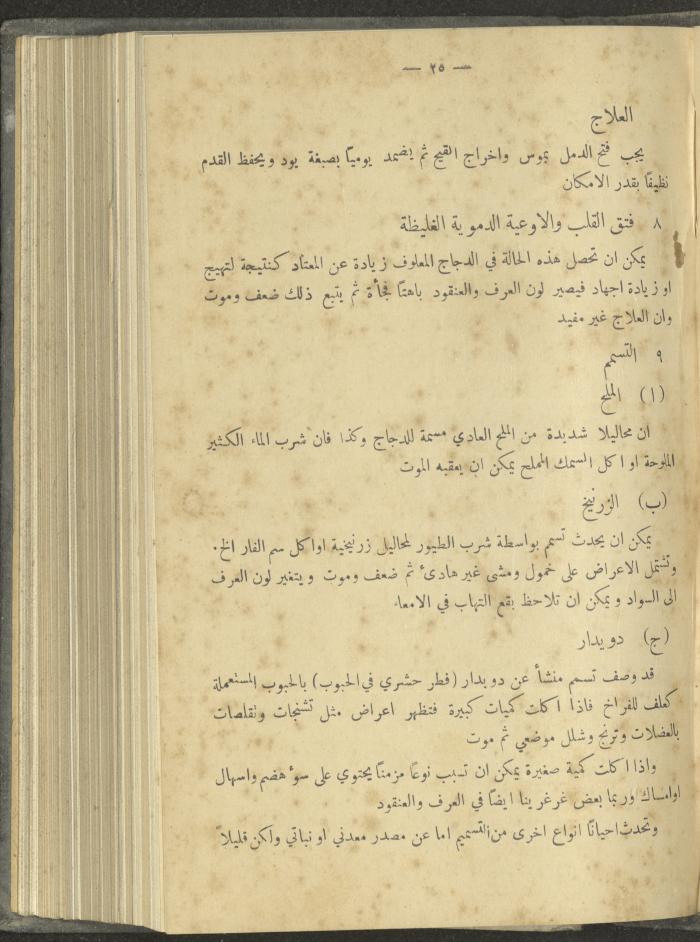 — ٢٥ —
العلاج
يجب فتح الدمل بموس واخراج القيح ثم يضمد يوميًا بصبغة يود ويحفظ القدم
نظيفًا بقدر الامكان
٨ فتق القلب والاوعية الدموية الغليظة
يمكن ان تحصل هذه الحالة في الدجاج المعلوف زيادة عن المعتاد كنتيجة لتهيج
او زيادة اجهاد فيصير لون العرف والعنقود باهتًا فجأة ثم يتبع ذلك ضعف وموت
وان العلاج غير مفيد
٩ التسمم
(ا) الملح
ان محاليلا شديدة من الملح العادي مسمة للدجاج وكذا فان شرب الماء الكثير
الملوحة او اكل السمك المملح يمكن ان يعقبه الموت
(ب) الزرنيخ
يمكن ان يحدث تسمم بواسطة شرب الطيور لمحاليل زرنيخية او اكل سم الفار الخ.
وتشتمل الاعراض على خمول ومشى غير هادئ ثم ضعف وموت ويتغير لون العرف
الى السواد ويمكن ان تلاحظ بقع التهاب في الامعاء
(ج) دويدار
قد وصف تسمم منشأ عن دويدار (فطر حشري في الحبوب) بالحبوب المستعملة
كعلف للفراخ فاذا اكلت كميات كبيرة فتظهر اعراض مثل تشنجات وتقلصات
بالعضلات وترنح وشلل موضعي ثم موت
واذا اكلت كمية صغيرة يمكن ان تسبب نوعًا مزمنًا يحتوي على سوء هضم واسهال
او امساك وربما بعض غرغرينا ايضًا في العرف والعنقود
وتحدث احيانًا انواع اخرى من التسميم اما عن مصدر معدني او نباتي ولكن قليلاً